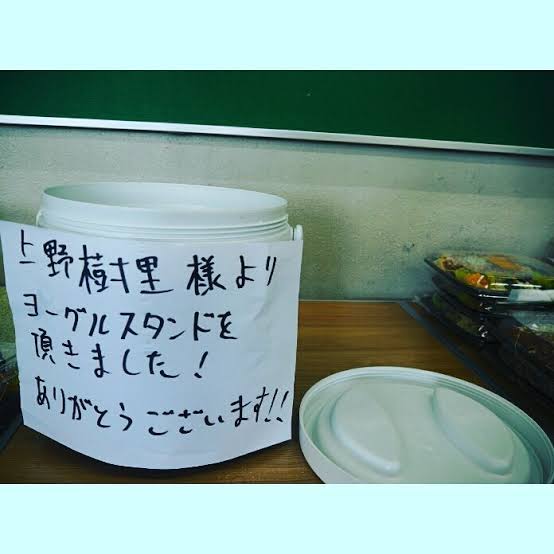 上野樹里様より
ヨーグルスタンドを
頂きました!
ありがとうございます!!